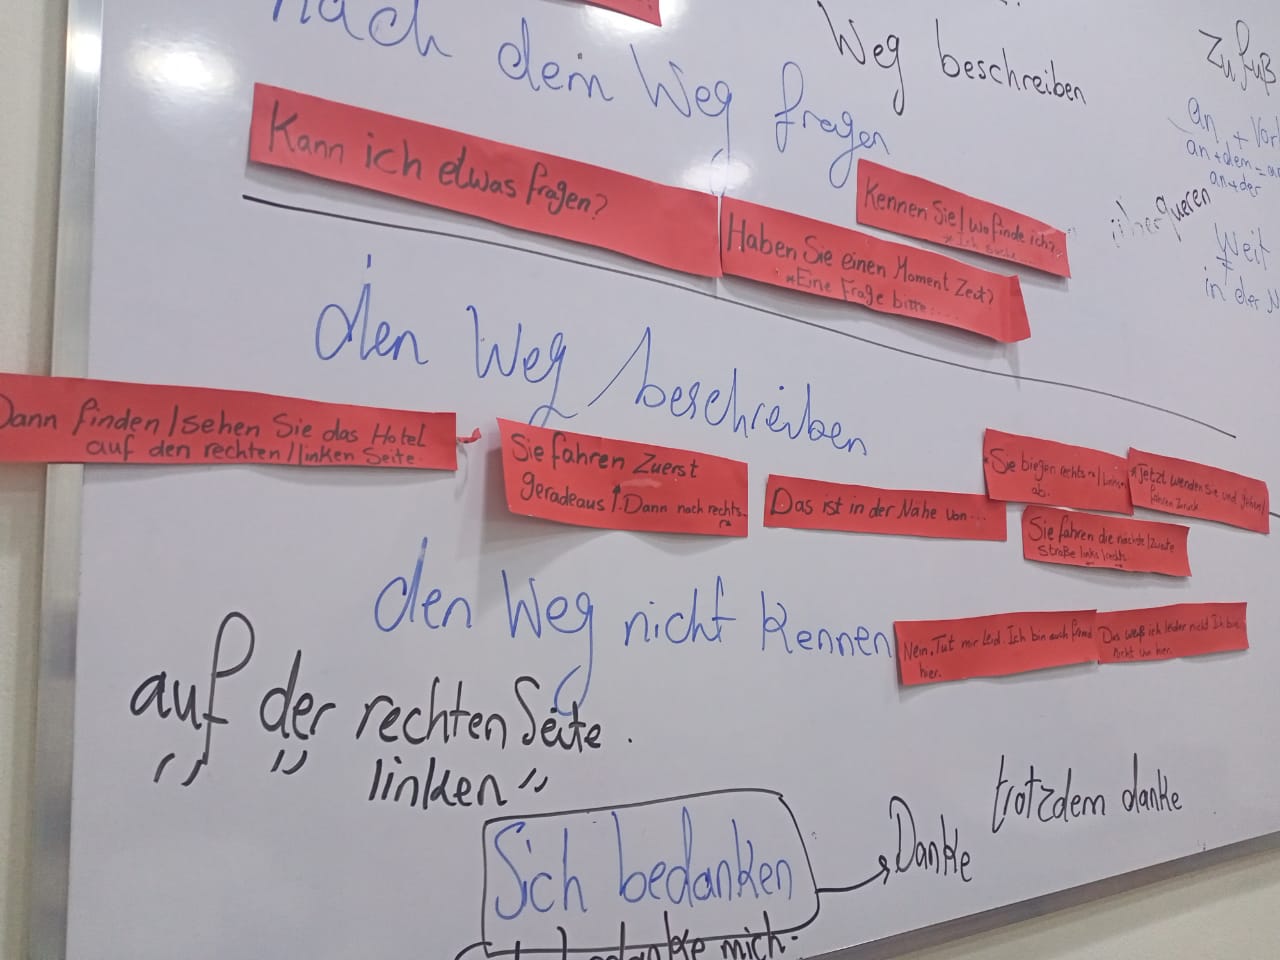 nach dem Weg fragen
Weg beschreiben
Zu fuß
an + Vor
an+dem = an
an+der
überqueren
Weit
in der N
Kann ich etwas fragen?
Kennen Sie / Wo finde ich?
* Ich suche....
Haben Sie einen Moment Zeit?
*Eine Frage bitte.....
den Weg beschreiben
Dann finden / sehen Sie das Hotel
auf den rechten / linken Seite.
Sie fahren Zuerst
geradeaus ↑. Dann nach rechts.
Das ist in der Nähe von...
* Sie biegen rechts / links
ab.
* Jetzt wenden Sie und gehen /
fahren zurück
Sie fahren die nächste / Zweite
straße links / rechts.
den Weg nicht kennen
Nein. Tut mir Leid. Ich bin auch fremd
hier.
Das weiß ich leider nicht Ich bin
nicht von hier.
auf der rechten Seite.
" " linken "
Sich bedanken
→ Danke
trotzdem danke
bedanke mich.